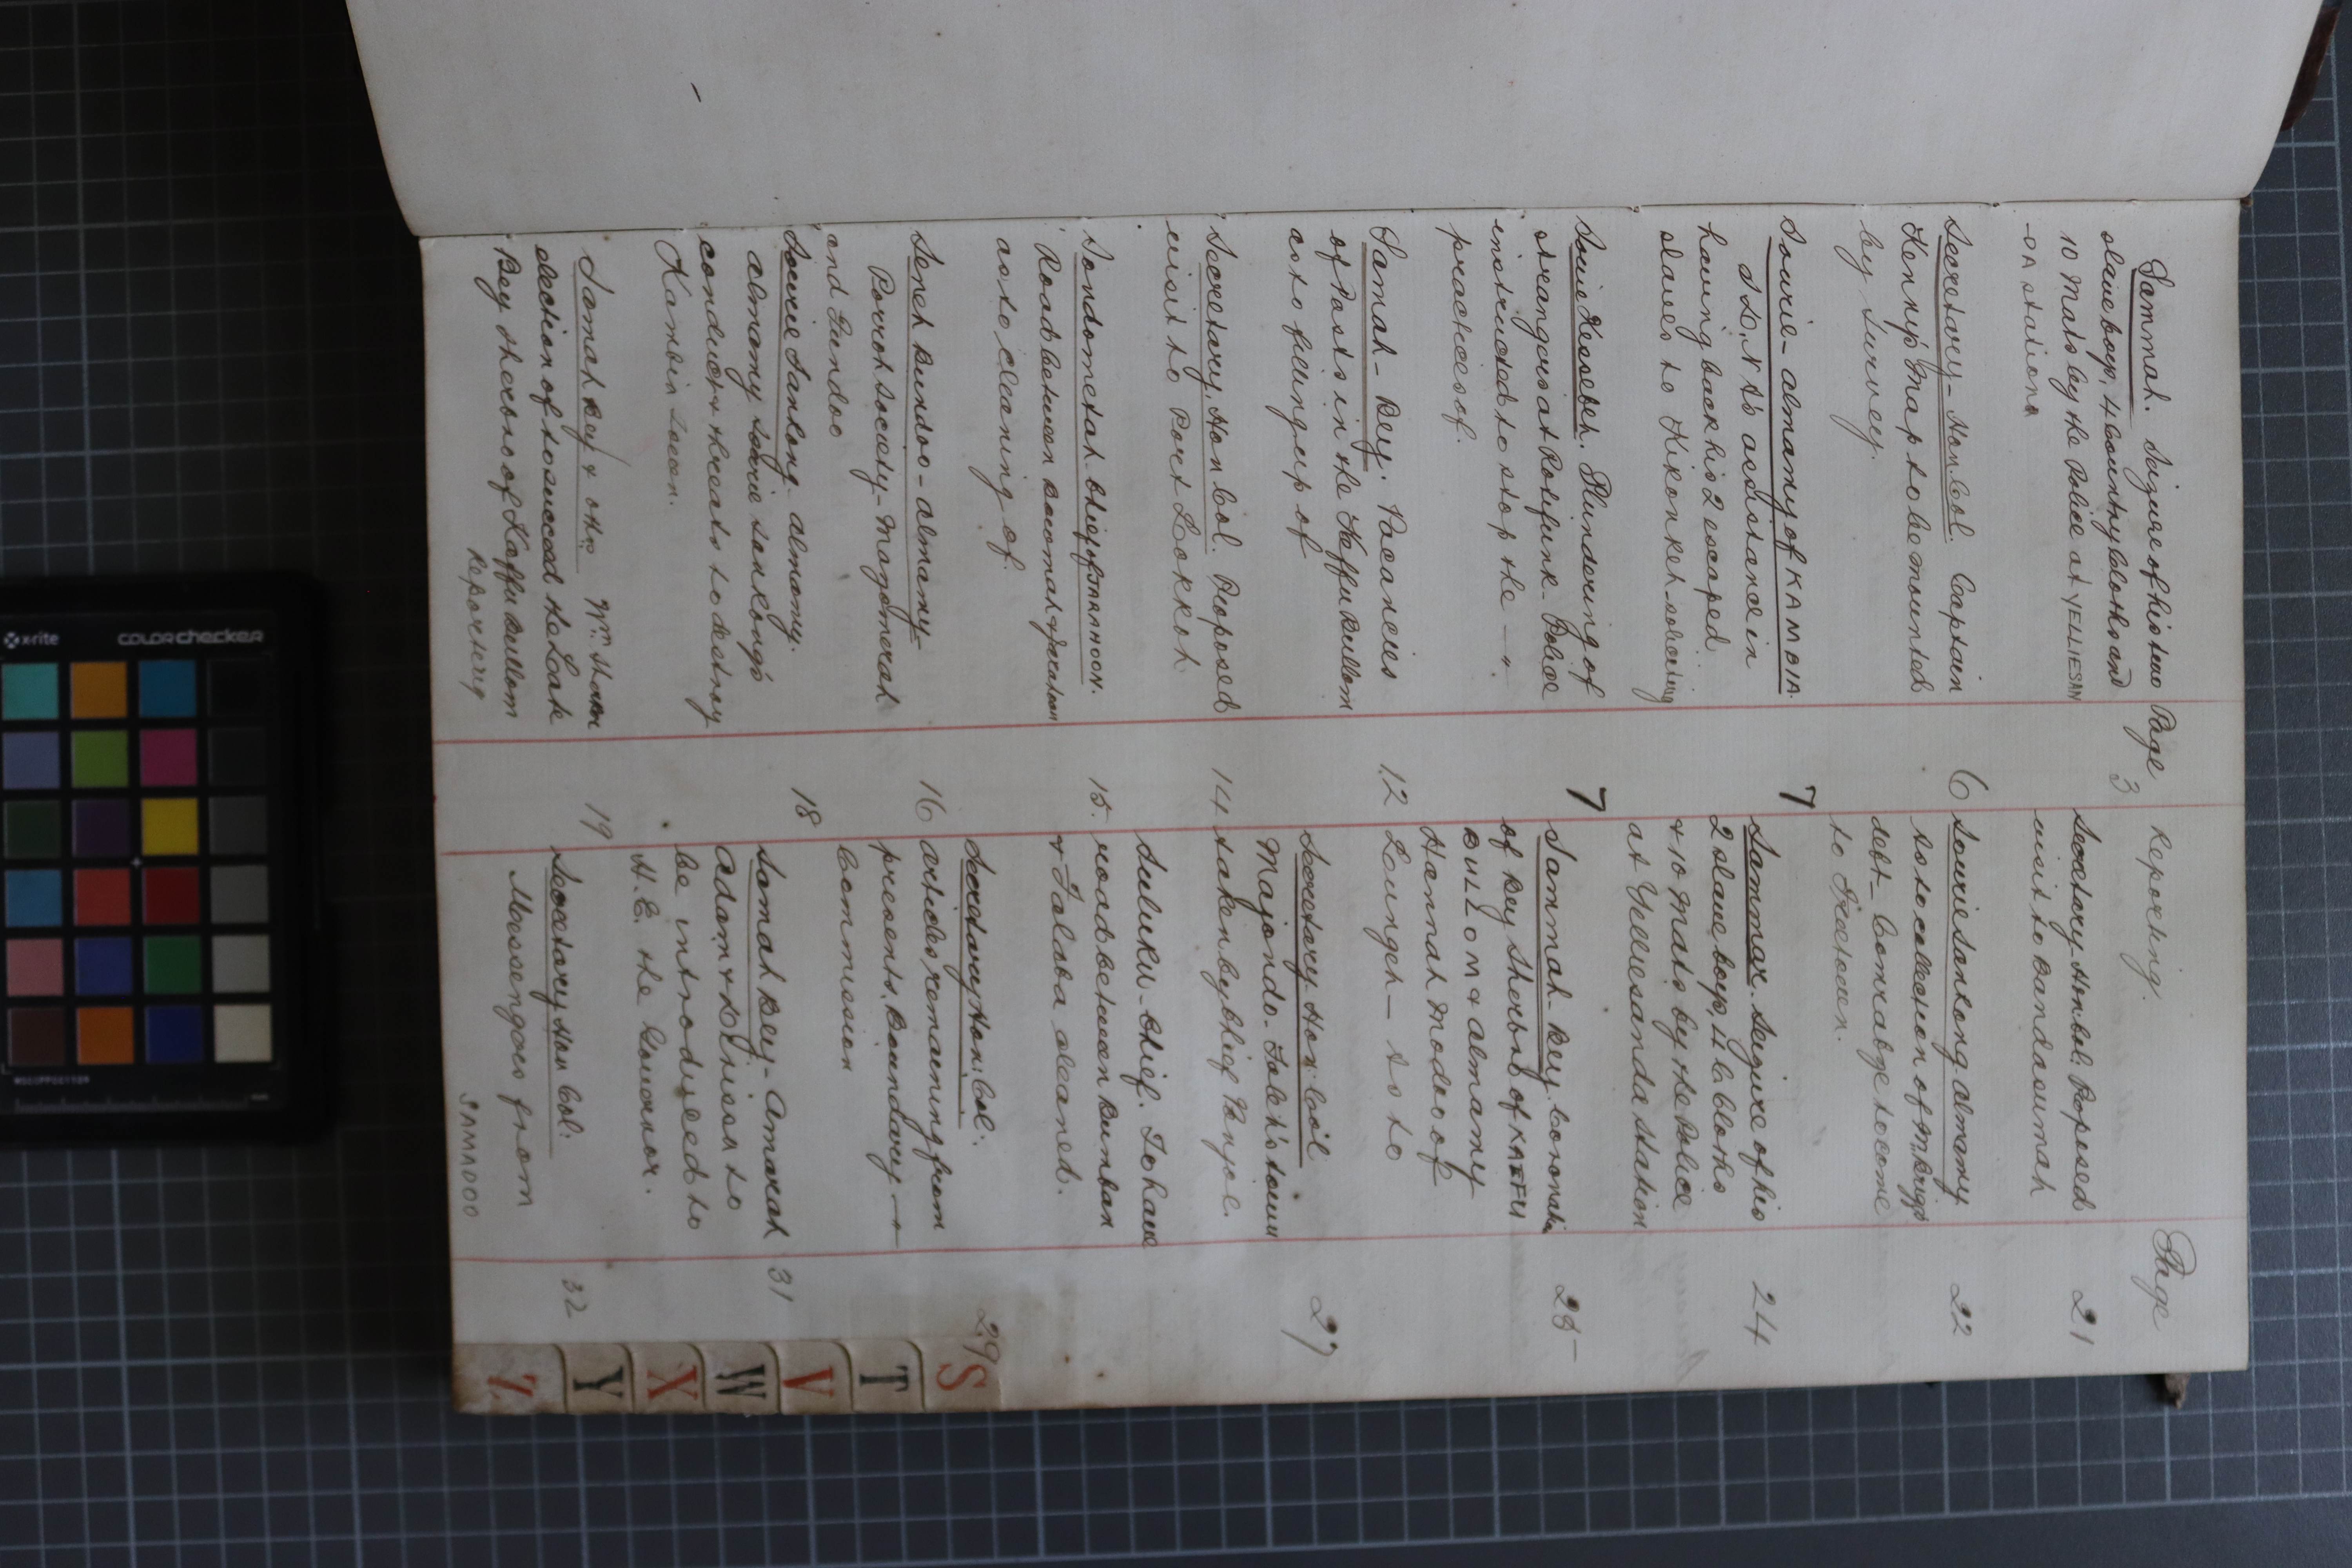 Page
Sammah. Seizure of his two 3
slave boys, 4 Country Cloths and
10 Mats by the Police at YELLIESAN
DA station
Secretary - Hon: Col. Captain 6
Kenny's Map to be mounted
by Survey.
Sourie - Almamy of KAMBIA.
I.D.N.A's assistance in 7
having back his 2 escaped
slaves to Kikonkeh soliciting
Sourie Kessebeh. Plundering of 7
strangers at Rotifunk. Police
instructed to stop the
practices of.
Samah - Bey. Vacancies 12
of Posts in the Kaffu Bullom
as to filling up of
Secretary, Hon Col. Proposed 14
visit to Port Lokkoh
Sondometah Chief of TARAHOON. 15.
Road between Boumah & Jarahoon
as to cleaning of.
Seneh Bundoo - Almamy - 16
Porroh Society - Magomerah
and Gundoo
Sourie Sankong - Almamy. 18
Almamy Sourie Sankong's
conduct & threats to destroy
Kambia Town.
Samah Bey & ors Wm. 19
election of to succeed the Late
Bey Sherbro of Kaffu Bullom
Reporting
Reporting. Page
Secretary Hon Col. Proposed 21
visit to Bandasumah
Sourie Sankong Almamy 22
as to collection of M. Briggs
debt - Comrabye to come
to Freetown.
Sammah. Seizure of his 24
2 slave boys, 4 C Cloths
& 10 Mats by the Police
at Yelliesanda Station
Sammah Bey Coronation 25
of Bey Sherbro of KAFFU
BULLOM & Almamy
Hannah Modu of
Lungeh - as to
Secretary Hon: Col 27
Majondo. Faleh's town
taken by Chief Vonjoe.
Suluku - Chief. To have
road between Bumban
& Falaba cleaned.
Secretary Hon: Col: 29
articles remaining from
presents, Boundary
Commission
Samah Bey - Amarah 31
Adam & to
be introduced to
H.E. the Governor.
Secretary Hon Col: 32
Messengers from
SAMADOO
S
T
V
W
X
Y
Z
x-rite
colorchecker